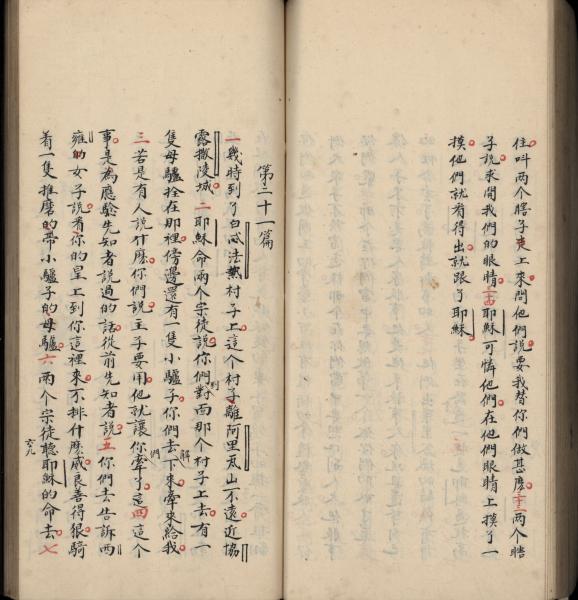 住呌两个瞎子來問他們說要我替你們做甚麽三十三两个瞎
子說求開我們的眼睛三十四耶穌可憐他們在他們眼睛上摸了一
摸他們就看得出就跟了耶穌
第二十一篇
一幾時到了白法熱村子上這个村子離阿里瓦山不遠近協
露撒陵城二耶穌命兩个宗徒說你們到對面那个村子上去有一
隻母驢拴在那裡傍邊還有一隻小驢子你們去解下來牽來給我
三若是有人說什麽你們說主子要用他就讓你們牽了這四這个
事是為應驗先知者說過的話從前先知者說五你們去告訴西
雍的女子說看你的皇上到你這裡來不排什麽威良善得狠騎
着一隻推磨的帶小驢子的母驢六兩个宗徒聽耶穌的命去七